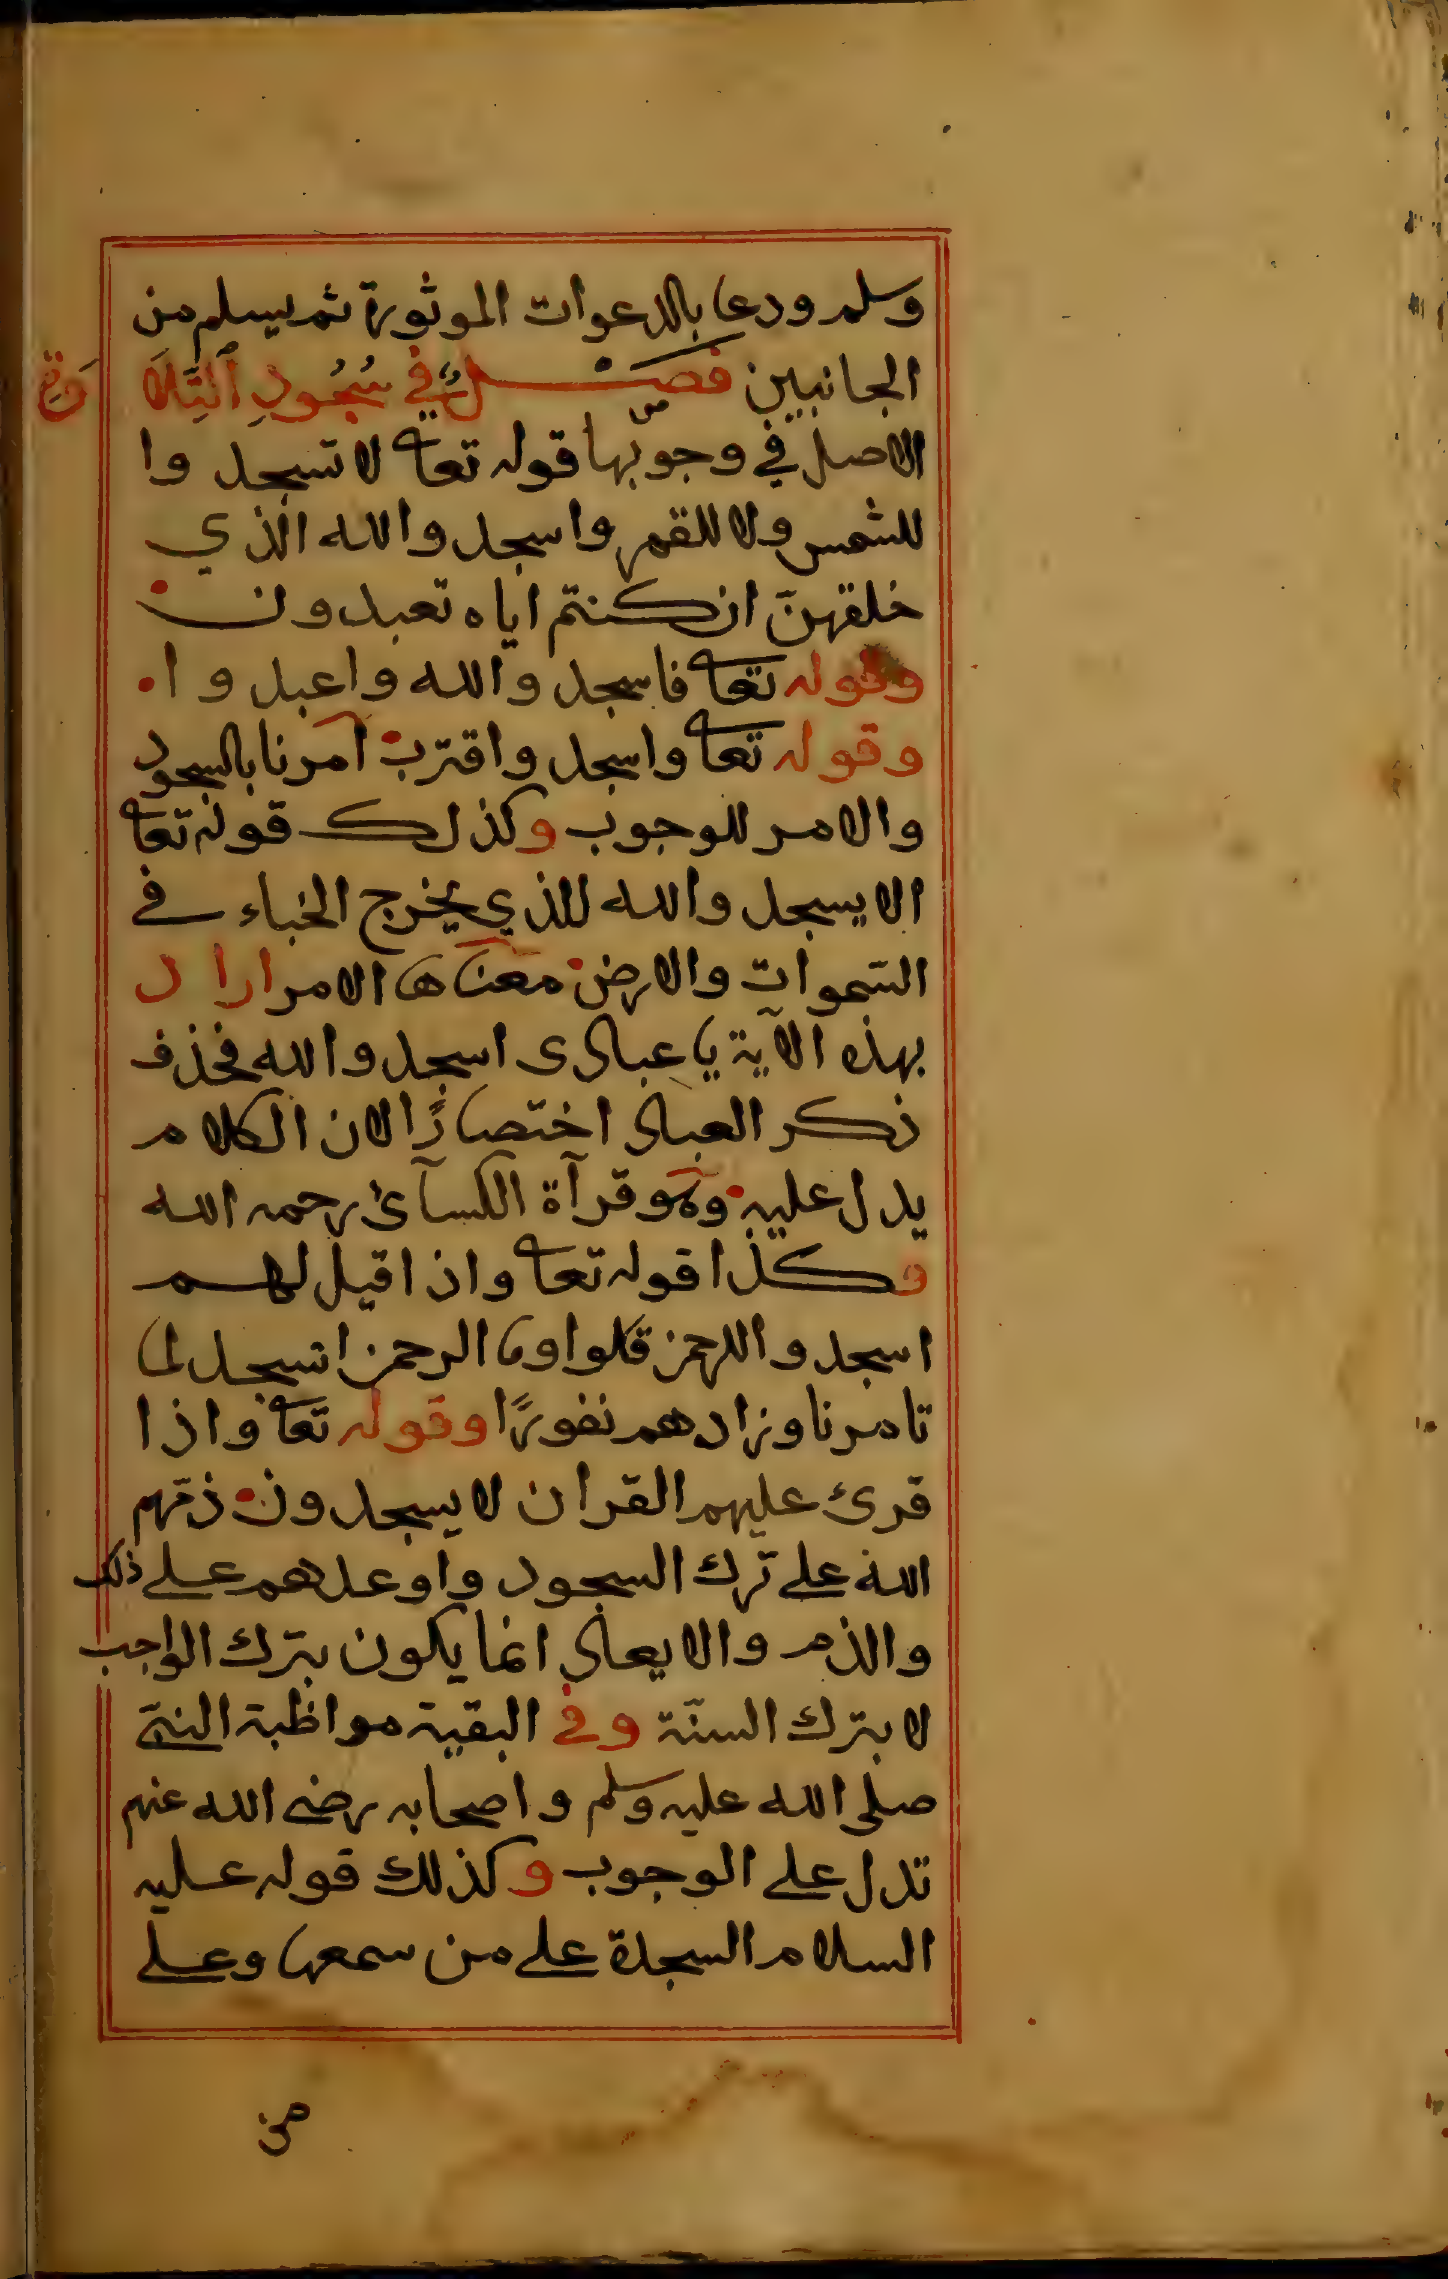 وسلم ودعا بالدعوات الموثورة ثم يسلم من
الجانبين فصل في سُجُودِ التِّلَاوَةِ
الاصل في وجوبها قوله تعا لا تسجدوا
للشمس ولا للقمر واسجدوا لله الذي
خلقهنّ ان كنتم اياه تعبدون
وقوله تعا فاسجدوا لله واعبدوا
وقوله تعا واسجد واقترب امرنا بالسجود
والامر للوجوب وكذلك قوله تعا
الا يسجدوا لله الذي يخرج الخباء في
السّموات والارض معناها الامر اراد
بهذه الآية يا عبادى اسجدوا لله فحذف
ذكر العباد اختصارًا لان الكلام
يدل عليه وهو قرآة الكسآئ رحمه الله
وكذا قوله تعا واذا قيل لهم
اسجدوا للرحمن قالوا وما الرحمن انسجد لما
تامرنا وزادهم نفورًا وقوله تعا واذا
قرئ عليهم القران لا يسجدون ذمّهم
الله على ترك السجود واوعدهم على ذلك
والذم والايعاد انما يكون بترك الواجب
لا بترك السنّة وفي البقية مواظبة النبيّ
صلى الله عليه وسلم واصحابه رضي الله عنهم
تدل على الوجوب وكذلك قوله عليه
السلام السجدة على من سمعها وعلى
من